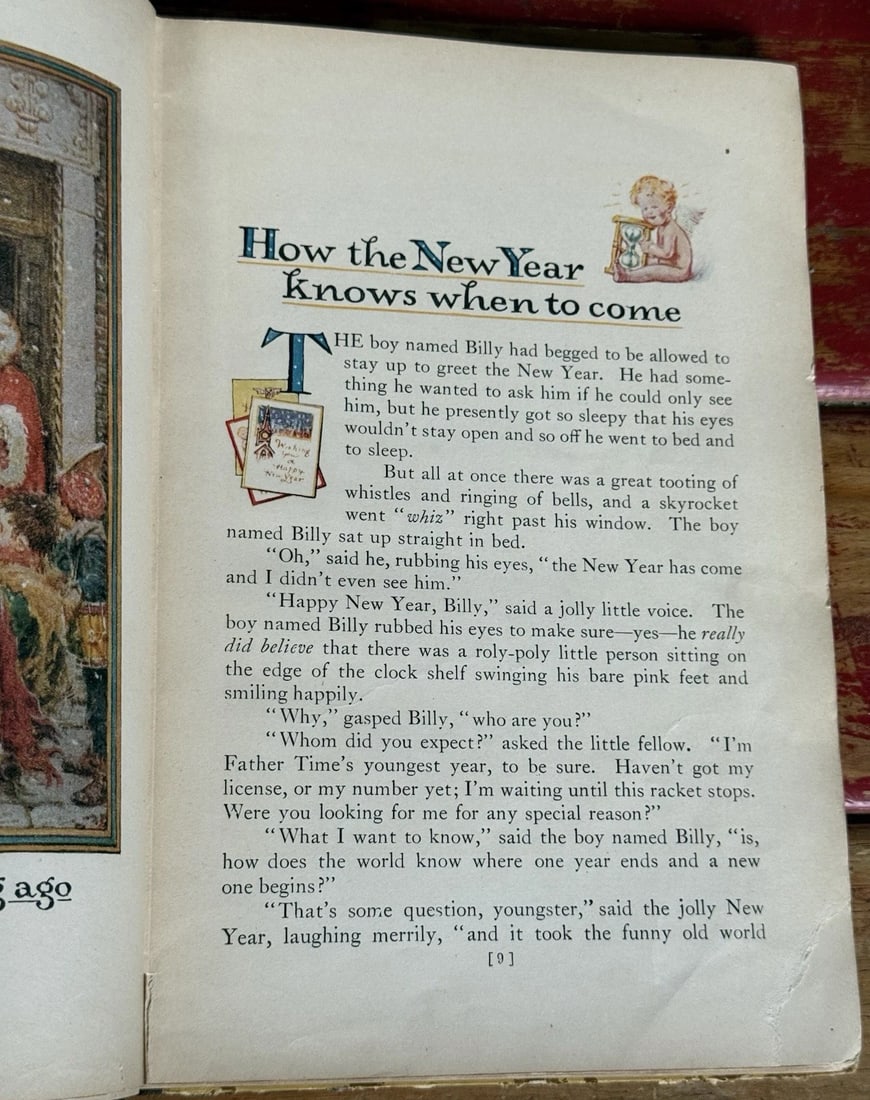 How the New Year
knows when to come
THE boy named Billy had begged to be allowed to
stay up to greet the New Year. He had some-
thing he wanted to ask him if he could only see
him, but he presently got so sleepy that his eyes
wouldn't stay open and so off he went to bed and
to sleep.
Wishing
you
a
Happy
New Year
But all at once there was a great tooting of
whistles and ringing of bells, and a skyrocket
went “whiz” right past his window. The boy
named Billy sat up straight in bed.
“Oh,” said he, rubbing his eyes, “the New Year has come
and I didn't even see him.”
“Happy New Year, Billy,” said a jolly little voice. The
boy named Billy rubbed his eyes to make sure—yes—he really
did believe that there was a roly-poly little person sitting on
the edge of the clock shelf swinging his bare pink feet and
smiling happily.
“Why,” gasped Billy, “who are you?”
“Whom did you expect?” asked the little fellow. “I'm
Father Time's youngest year, to be sure. Haven't got my
license, or my number yet; I'm waiting until this racket stops.
Were you looking for me for any special reason?”
“What I want to know,” said the boy named Billy, “is,
how does the world know where one year ends and a new
one begins?”
“That's some question, youngster,” said the jolly New
Year, laughing merrily, “and it took the funny old world
[9]
g ago